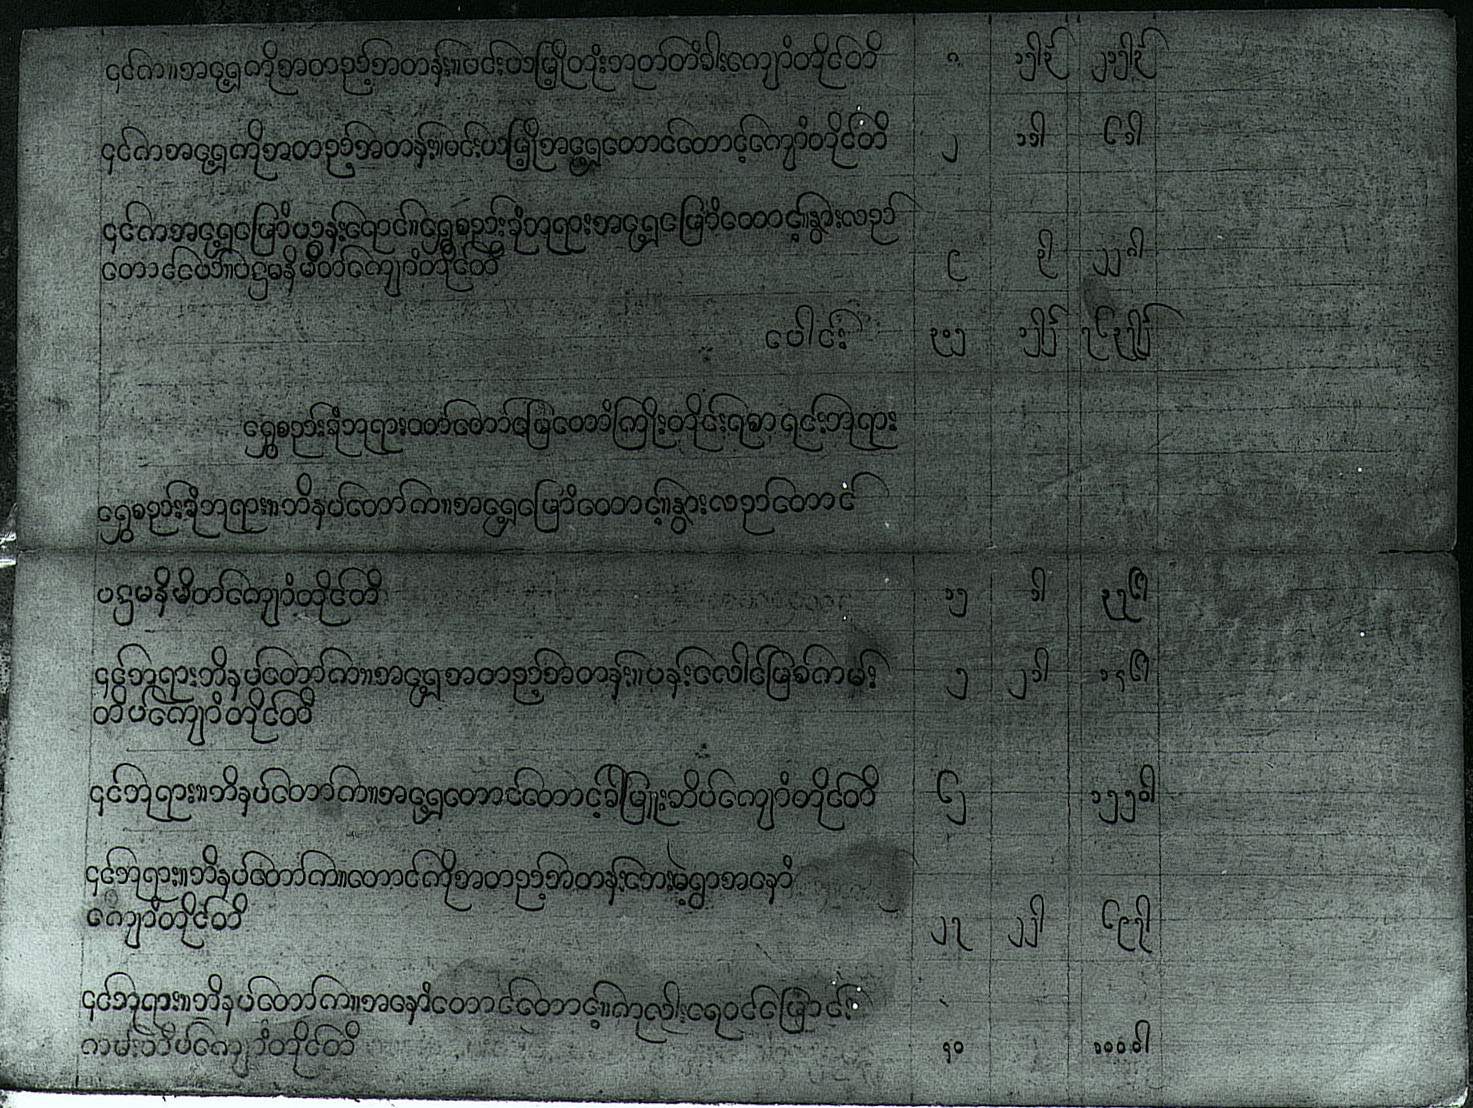 ၎င်းက။အရှေ့ကိုအတည့်အတန်း။မင်းယာမြို့တုံးဘုတ်တံခါးကျောက်တိုင်ထိ ၈ ၁၅ါ၃ ၂၁၅ါ၃
၎င်းကအရှေ့ကိုအတည့်အတန်း။မင်းယာမြို့အရှေ့တောင်ထောင့်ကျောက်တိုင်ထိ ၂ ၁၁ါ ၆၁ါ
၎င်းကအရှေ့မြောက်ယွန်းရောင်။ရွှေစည်းခုံဘုရားအရှေ့မြောက်ထောင့်။နွားလည်
တောင်ငယ်။ပဌမနိမိတ်ကျောက်တိုင်ထိ ၉ ၃ါ ၂၂၈ါ
ပေါင်း ၃၀၅
ရွှေစည်းခုံဘုရားဝတ်တော်မြေတော်ကြိုးတိုင်းရစာရင်းဘုရား
ရွှေစည်းခုံဘုရား။ဘိနပ်တော်က။အရှေ့မြောက်ထောင့်။နွားလည်တောင်
ပဌမနိမိတ်ကျောက်တိုင်ထိ ၁၅ ၁ါ ၃၇၆ါ
၎င်းဘုရားဘိနပ်တော်က။အရှေ့အတည့်အတန်း။ပန်းလေါင်မြစ်ကမ်း
ထိပ်ကျောက်တိုင်ထိ ၅ ၂၁ါ ၁၄၆ါ
၎င်းဘုရား။ဘိနပ်တော်က။အရှေ့တောင်ထောင့်ခါမြူးထိပ်ကျောက်တိုင်ထိ ၆၂ ၁၅၅၀ါ
၎င်းဘုရား။ဘိနပ်တော်က။တောင်ကိုအတည့်အတန်းဘေးမဲ့ရွာအနောက်
ကျောက်တိုင်ထိ ၂၇ ၂၂ါ ၆၉၇ါ
၎င်းဘုရား။ဘိနပ်တော်က။အနောက်တောင်ထောင့်။ကုလါးရေဝင်မြောင်း
ကမ်းထိပ်ကျောက်တိုင်ထိ ၄၀ ၁၀၀၀ါ